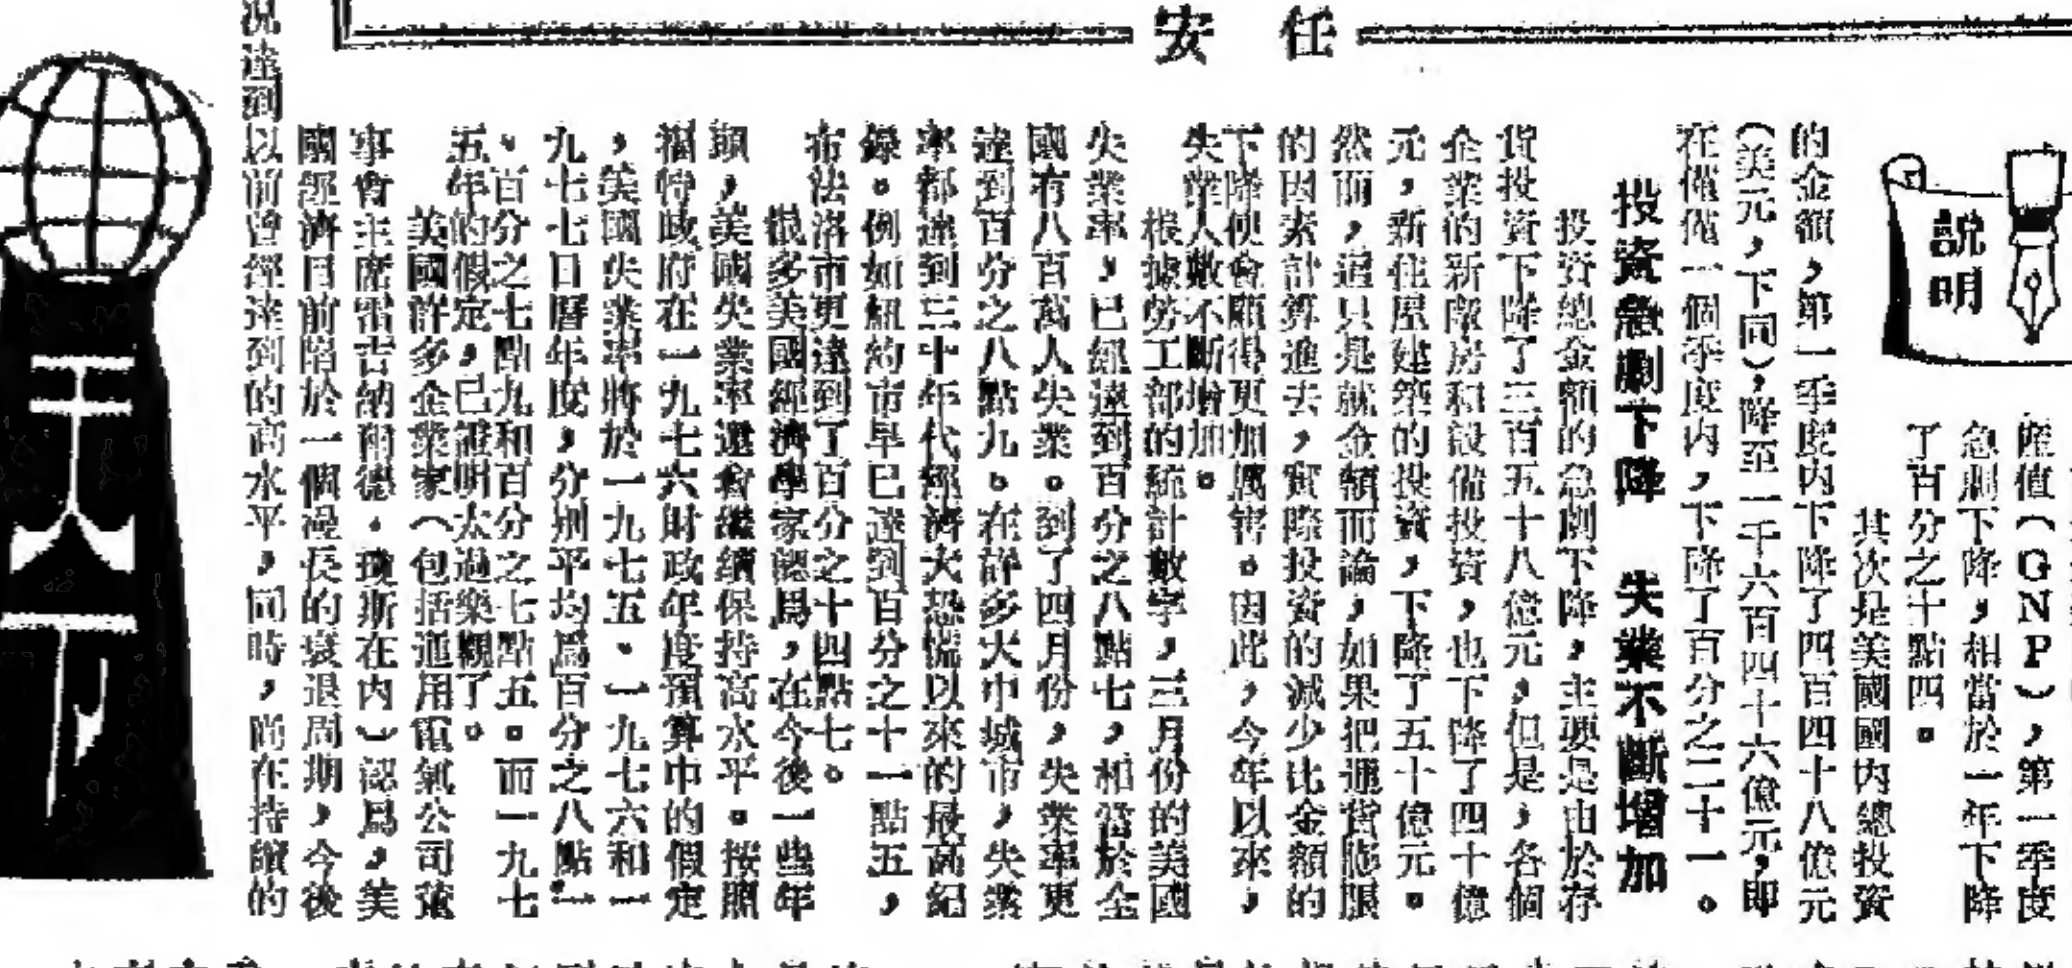 任 安
說明
產值(GNP),第一季度
急剧下降,相當於一年下降
了百分之十點四。
其次是美國國內總投資
的金額,第一季度內下降了四百四十八億元
(美元,下同),降至一千六百四十六億元,即
在僅僅一個季度內,下降了百分之二十一。
投資急劇下降 失業不斷增加
投資總金額的急劇下降,主要是由於存
貨投資下降了三百五十八億元,但是,各個
企業的新廠房和設備投資,也下降了四十億
元,新住屋建築的投資,下降了五十億元。
然而,這只是就金額而論,如果把通貨膨脹
的因素計算進去,實際投資的減少比金額的
下降便會顯得更加厲害。因此,今年以來,
失業人數不斷增加。
根據勞工部的統計數字,三月份的美國
失業率,已經達到百分之八點七,相當於全
國有八百萬人失業。到了四月份,失業率更
達到百分之八點九。在許多大巾城市,失業
率都達到三十年代經濟大恐慌以來的最高紀
錄。例如紐約市早已達到百分之十一點五,
布法洛市更達到了百分之十四點七。
很多美國經濟學家認爲,在今後一些年
頭,美國失業率還會繼續保持高水平。按照
福特政府在一九七六財政年度預算中的假定
,美國失業率將於一九七五、一九七六和一
九七七日曆年度,分別平均爲百分之八點一
、百分之七點九和百分之七點五。而一九七
五年的假定,已證明太過樂觀了。
美國許多企業家(包括通用電氣公司董
事會主席雷吉納爾德.瓊斯在內)認爲,美
國經濟目前陷於一個漫長的衰退周期,今後
況達到以前曾經達到的高水平,同時,尚在持續的
天下